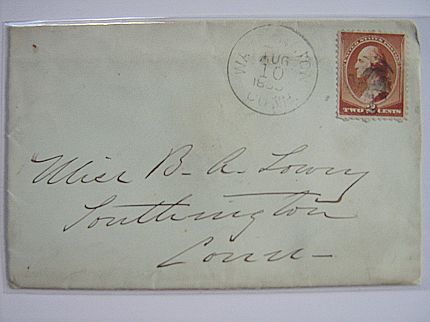 AUG
10
CONN.
UNITED STATES POSTAGE
2
TWO CENTS
Miss B. A. Lowry
Southington
Conn